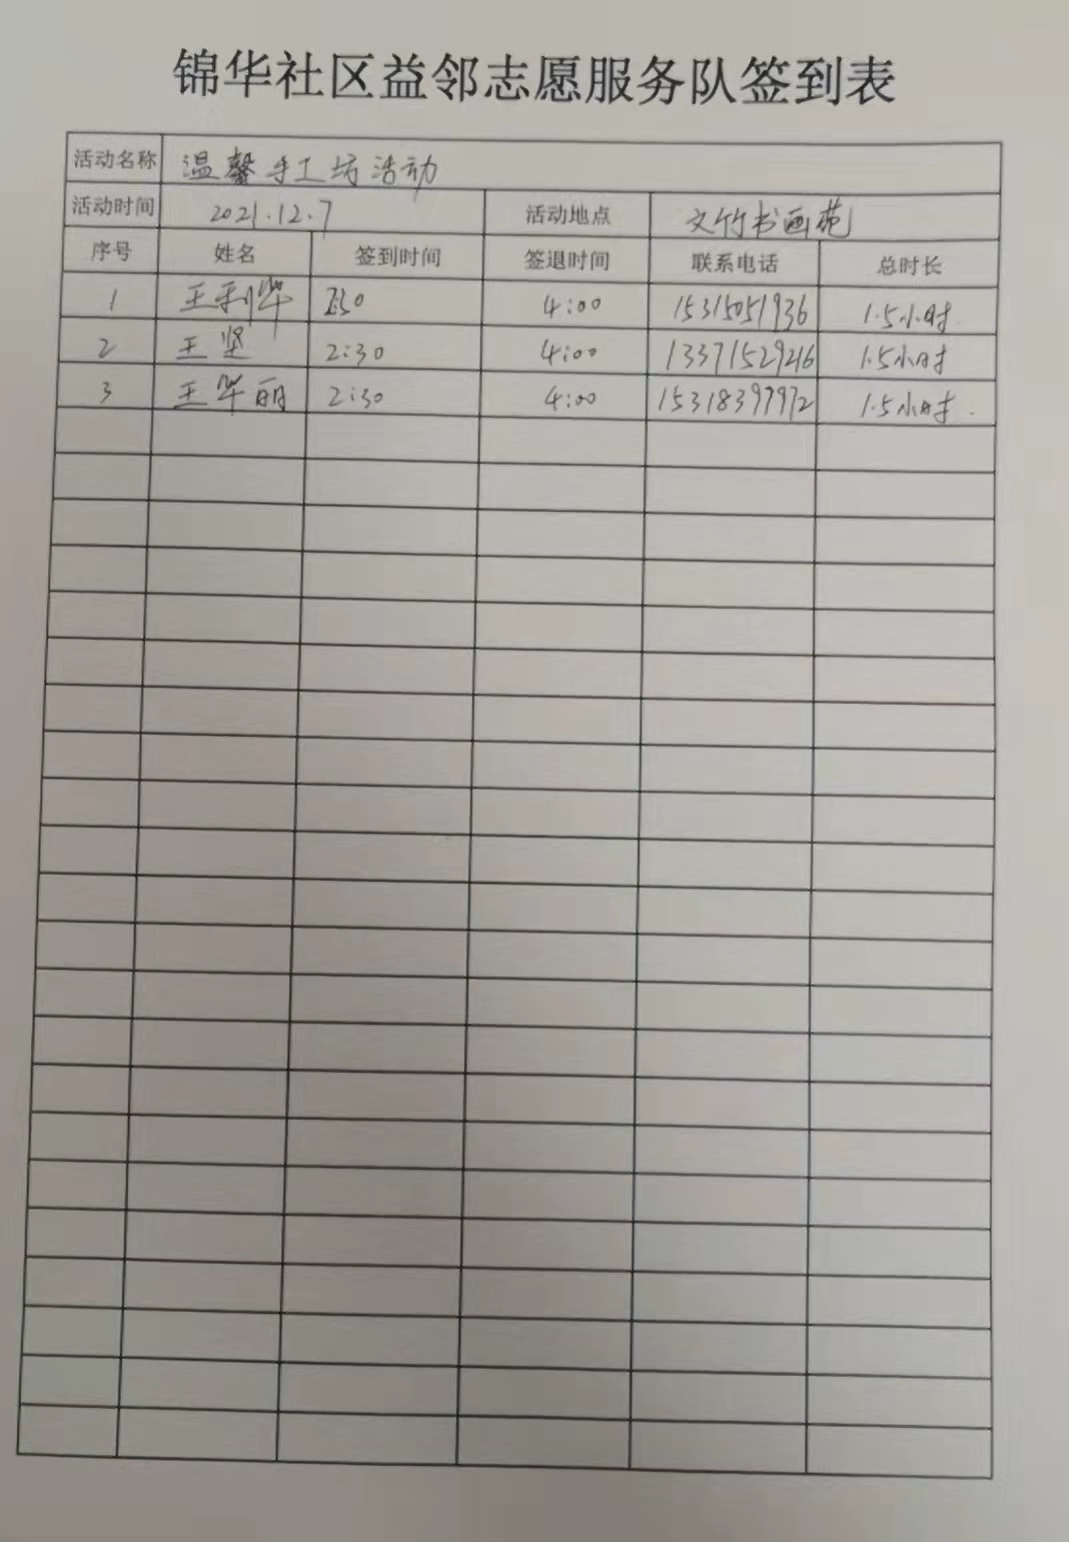 锦华社区益邻志愿服务队签到表
活动名称 温馨手工坊活动
活动时间 2021.12.7 活动地点 文竹书画苑
序号 姓名 签到时间 签退时间 联系电话 总时长
1 王利华 2:30 4:00 15315051936 1.5小时
2 王坚 2:30 4:00 13371152946 1.5小时
3 王华丽 2:30 4:00 15318397972 1.5小时.